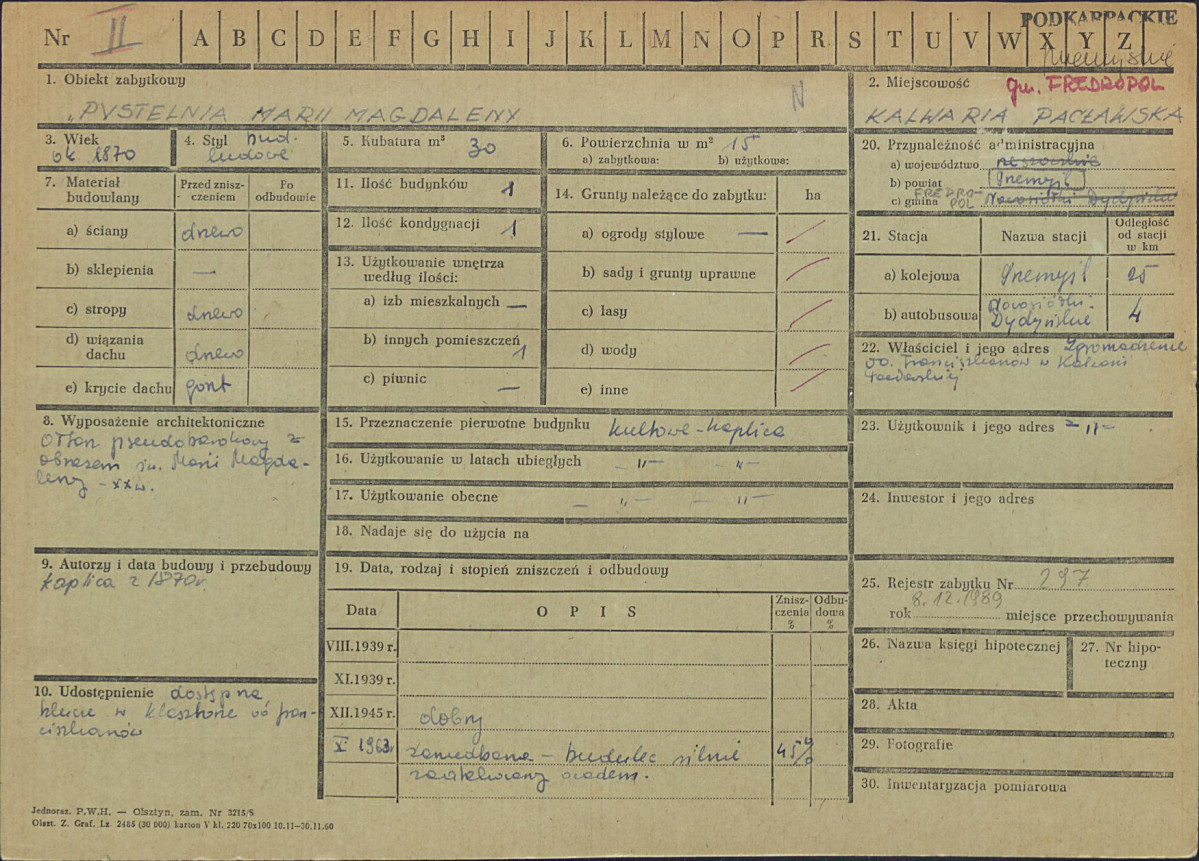 PODKARPACKIE
Nr II A B C D E F G H I J K L M N O P R S T U V W X Y Z
1. Obiekt zabytkowy
„PVSTELNIA MARII MAGDALENY
N
2. Miejscowość gm. FREDROPOL
KALWARIA PACŁAWSKA
3. Wiek
ok 1870
4. Styl bud.
ludowe
5. Kubatura m³ 30
6. Powierzchnia w m² 15
a) zabytkowa: b) użytkowa:
7. Materiał budowlany
Przed zniszczeniem
Po odbudowie
a) ściany drewo
b) sklepienia —
c) stropy drewo
d) wiązania dachu drewo
e) krycie dachu gont
8. Wyposażenie architektoniczne
Ołtarz pseudobarokowy z
obrazem św. Marii Magda-
leny - XX w.
9. Autorzy i data budowy i przebudowy
kaplica z 1870 r.
10. Udostępnienie dostępna
klucze w klasztorze oo fran-
ciszkanów
11. Ilość budynków 1
12. Ilość kondygnacji 1
13. Użytkowanie wnętrza
według ilości:
a) izb mieszkalnych —
b) innych pomieszczeń 1
c) piwnic —
14. Grunty należące do zabytku: ha
a) ogrody stylowe —
b) sady i grunty uprawne
c) lasy
d) wody
e) inne
15. Przeznaczenie pierwotne budynku kultowe - kaplica
16. Użytkowanie w latach ubiegłych — „— „—
17. Użytkowanie obecne — „— „—
18. Nadaje się do użycia na
19. Data, rodzaj i stopień zniszczeń i odbudowy
Data
OPIS
Zniszczenia %
Odbudowa %
VIII.1939 r.
XI.1939 r.
XII.1945 r. dobry
X 1963r zaniedbana — budulec silnie 45%
zaatakwany owadem.
20. Przynależność administracyjna
a) województwo rzeszowskie
b) powiat Przemyśl
c) gmina FREDRO-
POL Nowosiółki Dydyńskie
21. Stacja
Nazwa stacji
Odległość od stacji w km
a) kolejowa Przemyśl 25
b) autobusowa Nowosiółki-
Dydyńskie 4
22. Właściciel i jego adres Zgromadzenie
oo. Franciszkanów w Kalwarii
Pacławskiej
23. Użytkownik i jego adres — „—
24. Inwestor i jego adres
25. Rejestr zabytku Nr 297
8.12.1989
rok miejsce przechowywania
26. Nazwa księgi hipotecznej
27. Nr hipo-
teczny
28. Akta
29. Fotografie
30. Inwentaryzacja pomiarowa
Jednoraz. P.W.H. — Olsztyn, zam. Nr 3215/S
Olszt. Z. Graf. Lz. 2485 (30 000) karton V kl. 220 70x100 10.11—30.11.60